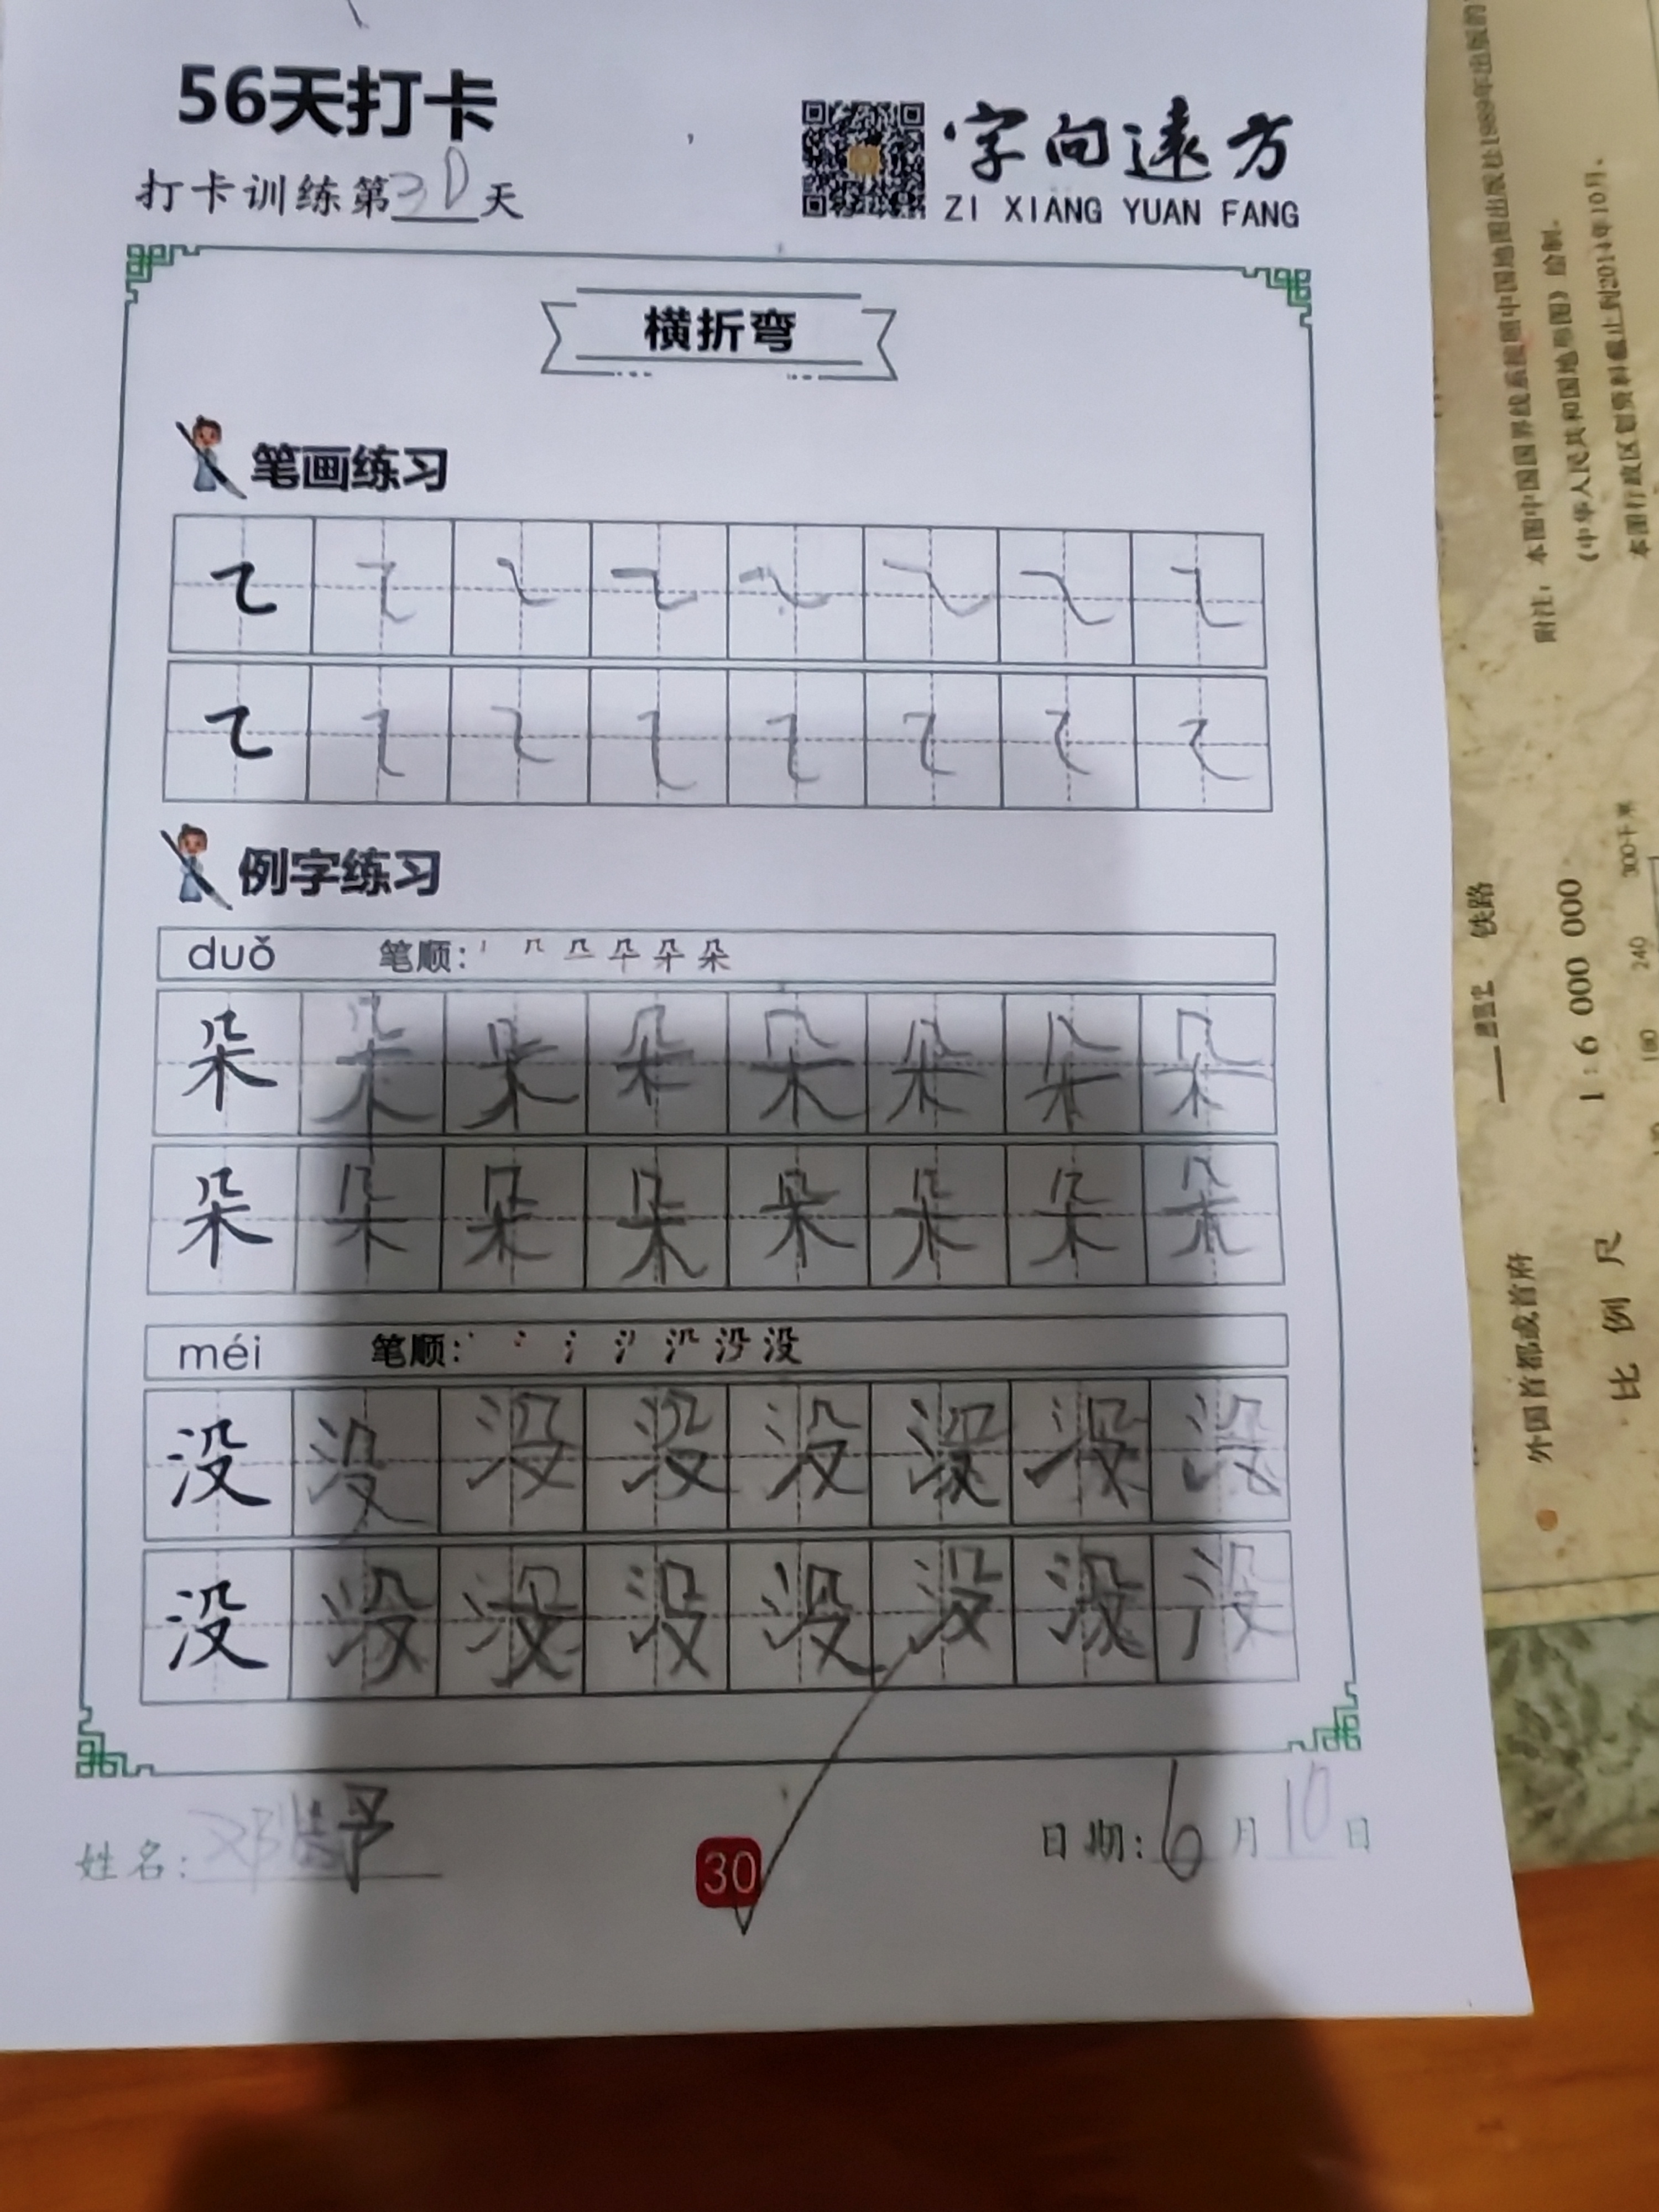 56天打卡
打卡训练第30天
字向遠方
ZI XIANG YUAN FANG
横折弯
笔画练习
例字练习
duǒ 笔顺:
朵 朵 朵 朵 朵 朵 朵 朵
朵 朵 朵 朵 朵 朵 朵 朵
méi 笔顺: 没
没 没 没 没 没 没 没 没
没 没 没 没 没 没 没 没
姓名:
30
日期: 6月10日
附注: 本图中国国界线系按照中国地图出版社1989年出版的
《中华人民共和国地形图》绘制。
本图行政区划资料截止到2014年10月。
铁路
外国首都或首府
1:6 000 000
比例尺
240
300千米